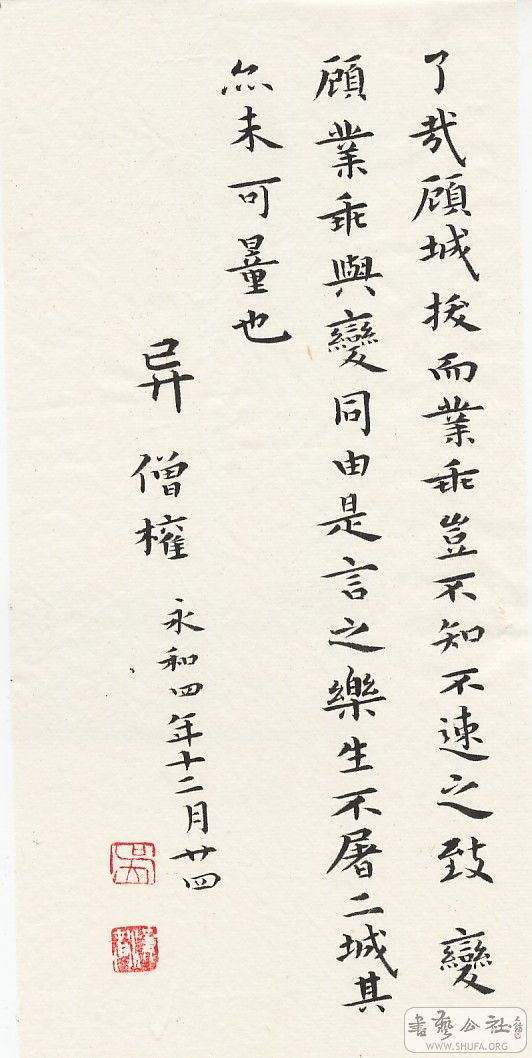 了哉顾城拔而業乖豈不知不速之致變
顾業乖與變同由是言之樂生不屠二城其
亦未可量也
异僧權
永和四年十二月廿四
吴
書藝公社
WWW.SHUFA.ORG